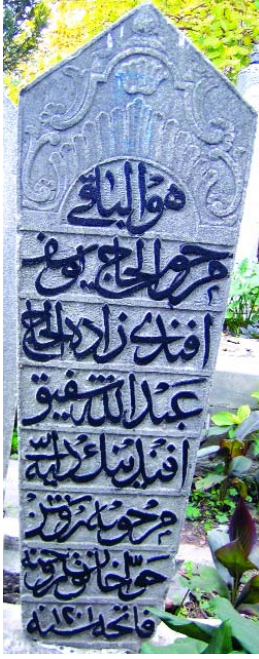 هو الباقی
مرحوم الحاج یوسف
افندی زاده الحاج
عبد الله شفیق
افندینك دایه سی
مرحومه
حوا خاتون روحنه
فاتحه سنه ١٢٠١